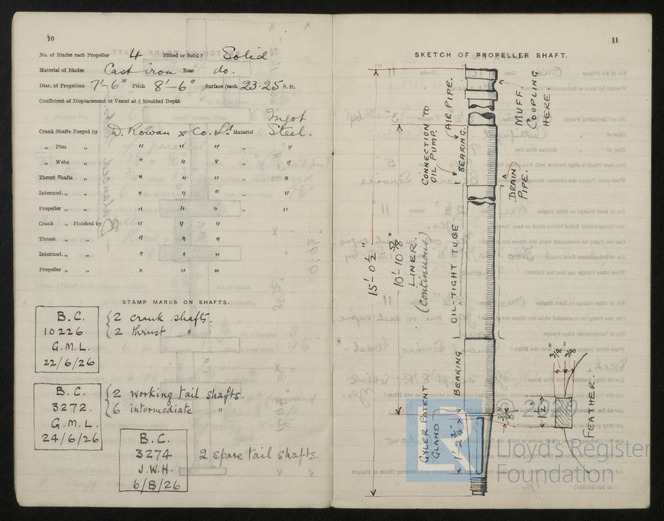 10
No. of Blades each Propeller 4 Fitted or Solid? Solid
Material of Blades Cast iron Boss do.
Diam. of Propellers 7'-6" Pitch 8'-6" Surface (each) 23.25 S. ft.
Coefficient of Displacement of Vessel at ¾ Moulded Depth
Crank Shafts Forged by D. Rowan & Co. Ld. Material Ingot Steel.
„ Pins „ „ „ „ „
„ Webs „ „ „ „ „
Thrust Shafts „ „ „ „ „
Intermed. „ „ „ „ „
Propeller „ „ „ „ „
Crank „ Finished by „ „ „
Thrust „ „ „ „
Intermed. „ „ „ „
Propeller „ „ „ „
STAMP MARKS ON SHAFTS.
B.C.
10226
G.M.L.
22/6/26
2 crank shafts.
2 thrust "
B.C.
3272.
G.M.L.
24/6/26
2 working tail shafts.
6 intermediate "
B.C.
3274
J.W.H.
6/8/26
2 spare tail shafts.
11
SKETCH OF PROPELLER SHAFT.
MUFF COUPLING HERE.
AIR PIPE.
CONNECTION TO OIL PUMP.
BEARING.
DRAIN PIPE.
15'-0½"
10'-10⅝"
LINER.
(continuous)
OIL-TIGHT TUBE
BEARING
GYLER PATENT GLAND
FEATHER.
© 20
Lloyd's Register
Foundation